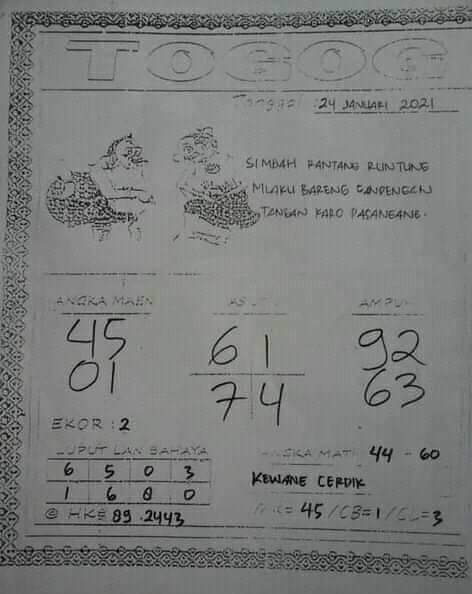 TOGOG
Tanggal : 24 JANUARI 2021
SIMBAH RANTANG RUNTUNG
MLAKU BARENG GANDENGAN
TANGAN KARO PASANGANE.
ANGKA MAEN
45
01
AS
6 1
7 4
AMPUH
92
63
EKOR : 2
LUPUT LAN BAHAYA
6 5 0 3
1 6 8 0
ANGKA MATI 44 - 60
KEWANE CERDIK
© HKS 89.2443
= 45 / CB = 1 / CL = 3